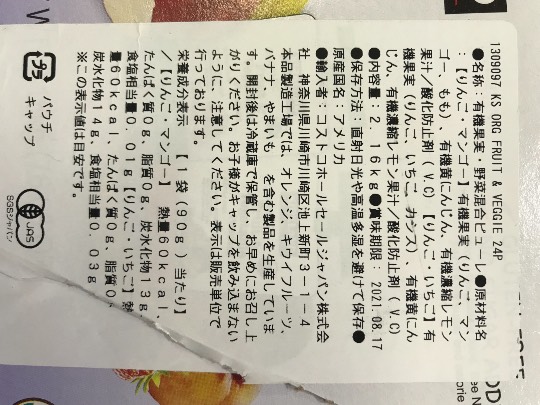 1309097 KS ORG FRUIT & VEGGIE 24P
●名称：有機果実・野菜混合ピューレ●原材料名
：【りんご・マンゴー】有機果実（りんご、マン
ゴー、もも）、有機黄にんじん、有機濃縮レモン
果汁／酸化防止剤（V.C)【りんご・いちご】有
機果実（りんご、いちご、カシス）、有機黄にん
じん、有機濃縮レモン果汁／酸化防止剤（V.C)
●内容量：2．16kg●賞味期限：2021.08.17
●保存方法：直射日光や高温多湿を避けて保存●
原産国名：アメリカ
●輸入者：コストコホールセールジャパン株式会
社 神奈川県川崎市川崎区池上新町3－1－4
本品製造工場では、オレンジ、キウイフルーツ、
バナナ、やまいも、を含む製品を生産していま
す。開封後は冷蔵庫で保管し、お早めにお召し上
がりください。お子様がキャップを飲み込まない
ように、注意してください。表示は販売単位で
行っております。
栄養成分表示 【1袋（90g）当たり】
／【りんご・マンゴー】 熱量60kcal、
たんぱく質0g、脂質0g、炭水化物13g
食塩相当量0．01g【りんご・いちご】熱
量60kcal、たんぱく質0g、脂質0g
炭水化物14g、食塩相当量0．03g
※この表示値は目安です。
プラ
パウチ
キャップ
JAS
SGSジャパン